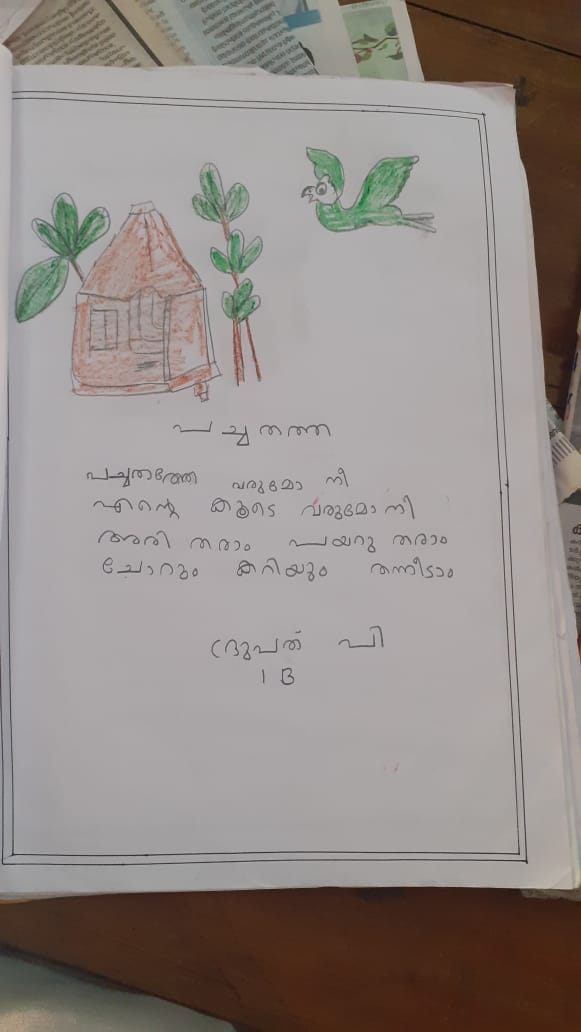 പച്ചതത്ത
പച്ചതത്തേ വരുമോ നീ
എന്റെ കൂടെ വരുമോ നീ
അരി തരാം പയറു തരാം
ചോറും കറിയും തന്നീടാം
ദ്രുപത് പി
1 B